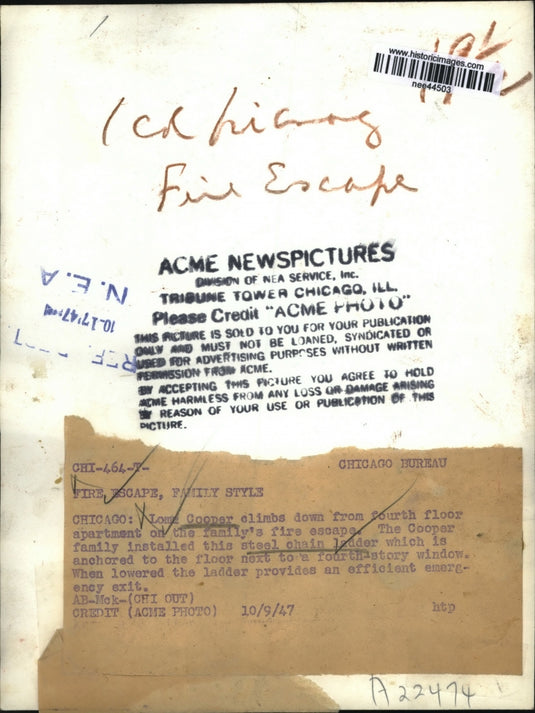 www.historicimages.com
nee44503
Fire Escape
ACME NEWSPICTURES
DIVISION OF NEA SERVICE, Inc.
TRIBUNE TOWER CHICAGO, ILL.
Please Credit "ACME PHOTO"
THIS PICTURE IS SOLD TO YOU FOR YOUR PUBLICATION
ONLY AND MUST NOT BE LOANED, SYNDICATED OR
USED FOR ADVERTISING PURPOSES WITHOUT WRITTEN
PERMISSION FROM ACME.
BY ACCEPTING THIS PICTURE YOU AGREE TO HOLD
ACME HARMLESS FROM ANY LOSS OR DAMAGE ARISING
BY REASON OF YOUR USE OR PUBLICATION OF THIS
PICTURE.
N.E.A
10-17'47
REF
CHI-464-T- CHICAGO BUREAU
FIRE ESCAPE, FAMILY STYLE
CHICAGO: Cooper climbs down from fourth floor
apartment on the family's fire escape. The Cooper
family installed this steel chain ladder which is
anchored to the floor next to a fourth story window.
When lowered the ladder provides an efficient emerg-
ency exit.
AB-Mck-(CHI OUT)
CREDIT (ACME PHOTO) 10/9/47 htp
A22474